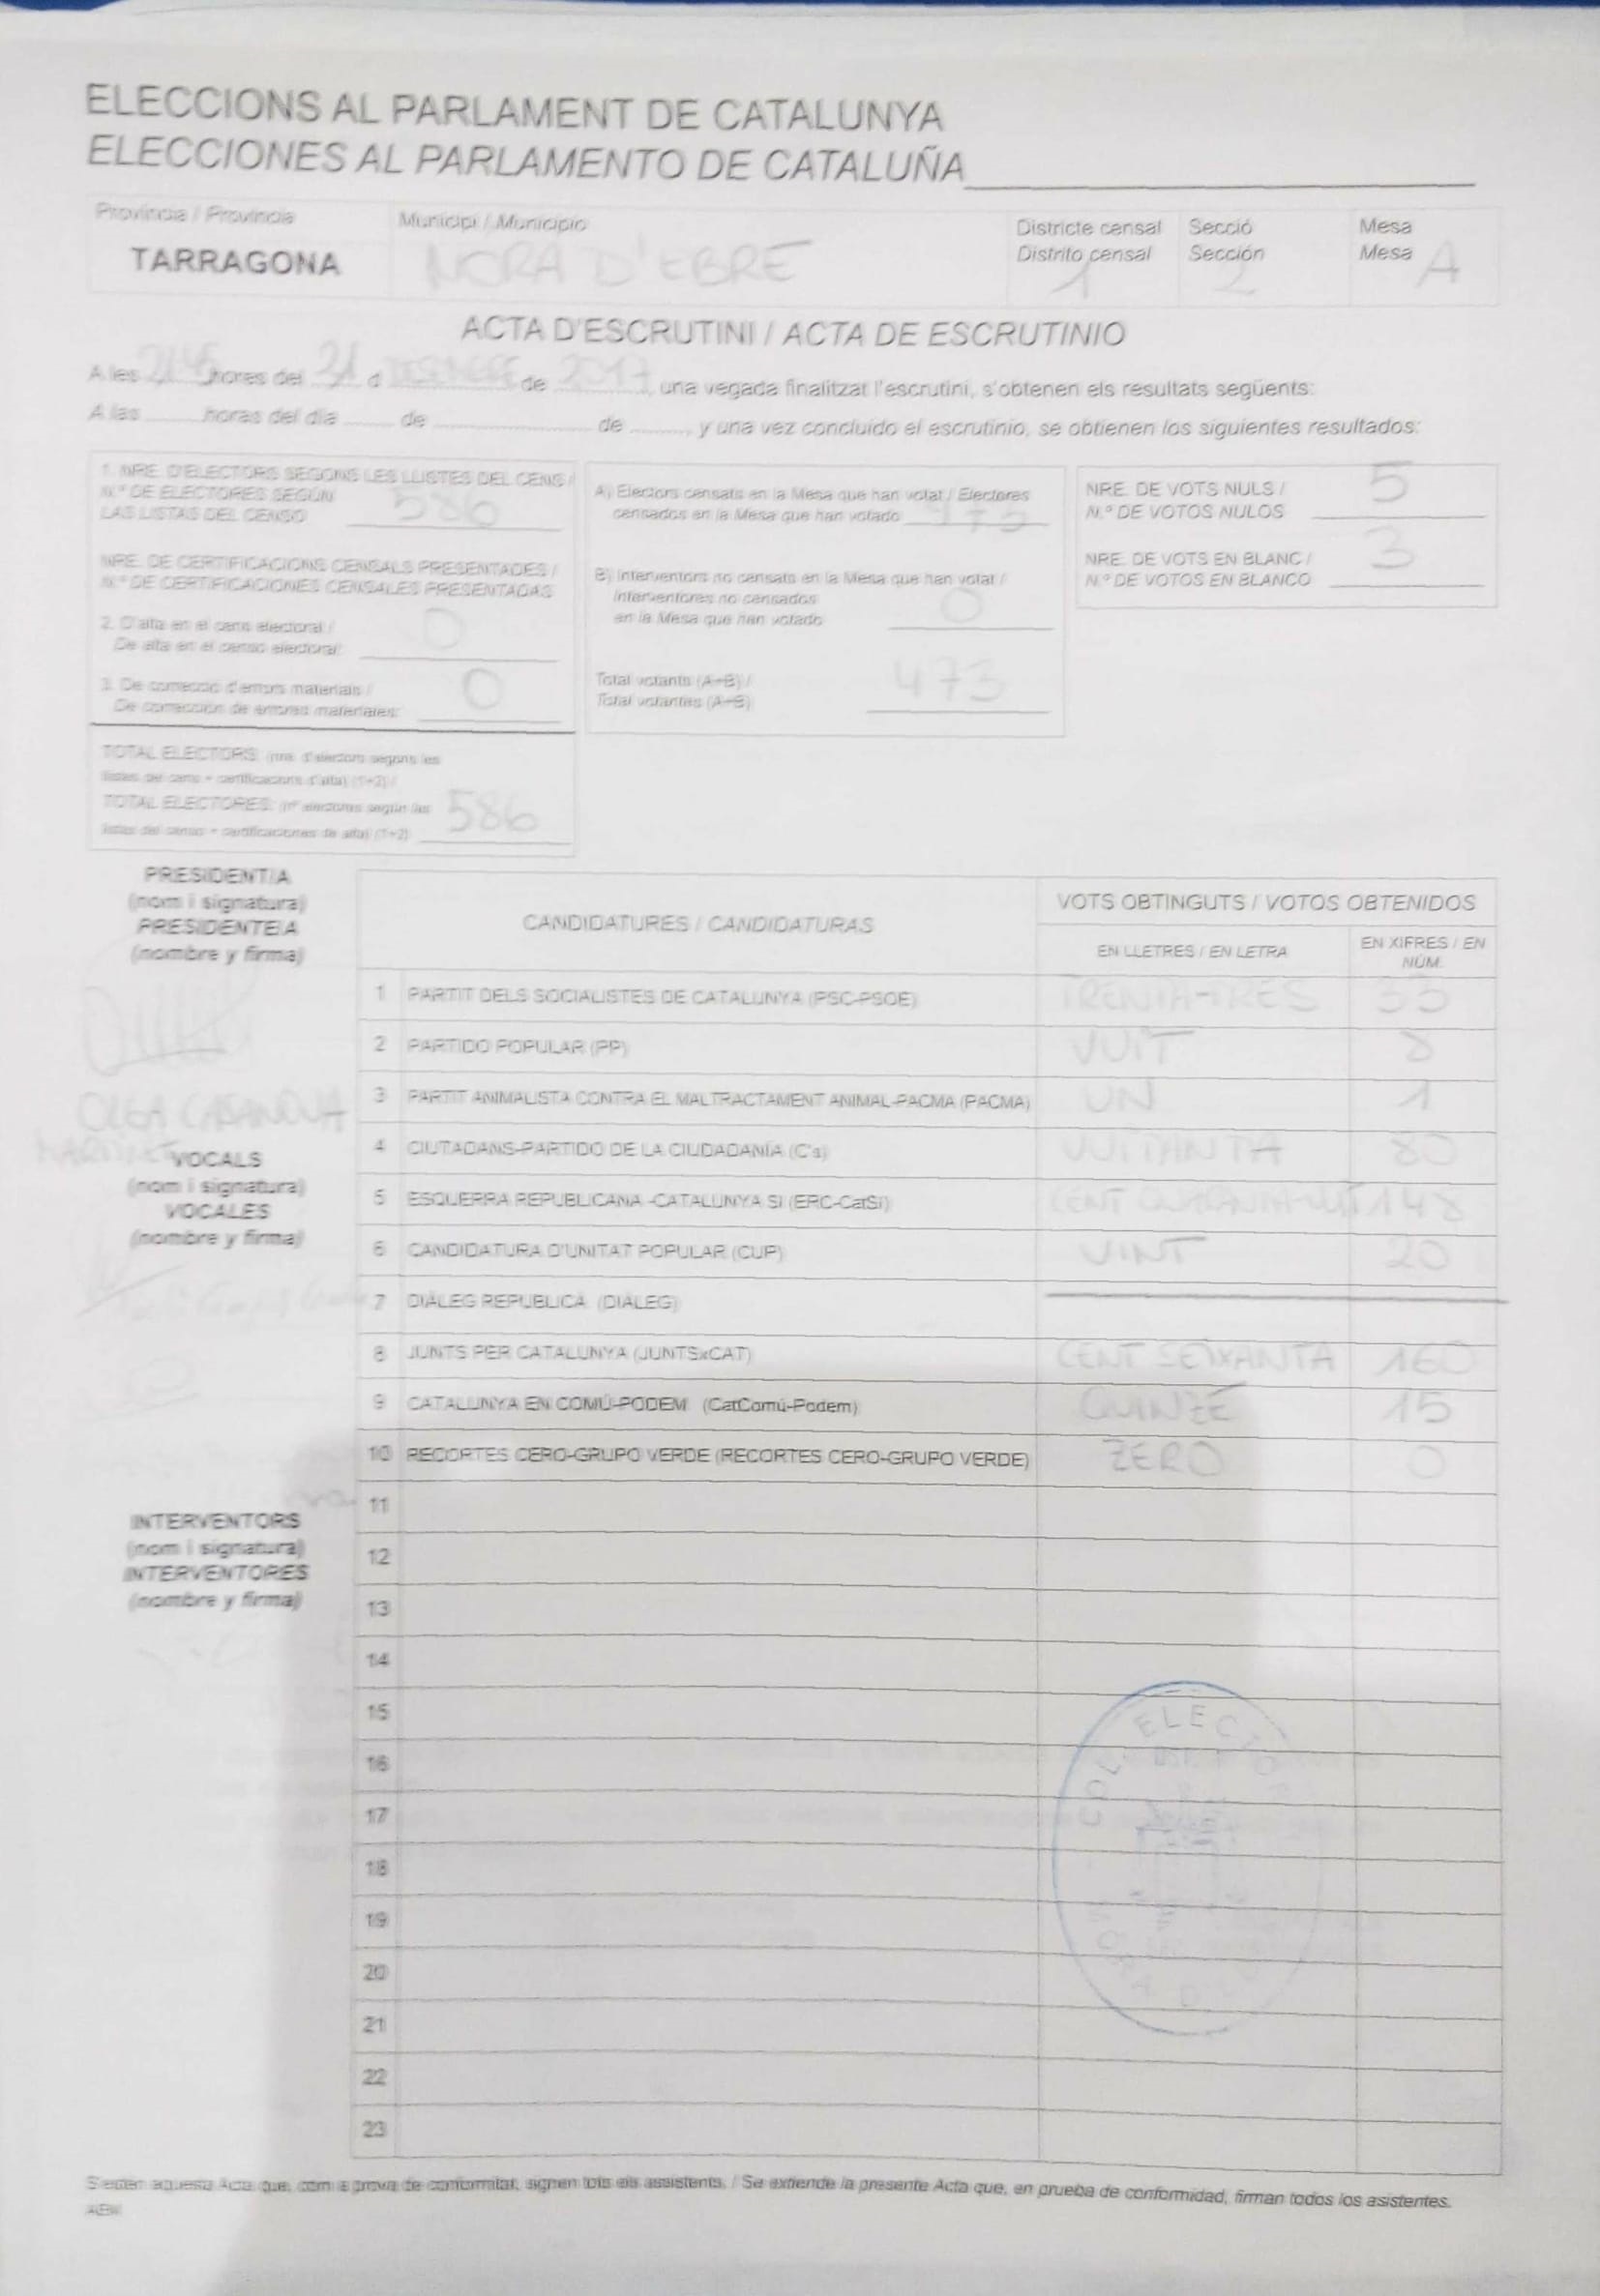 ELECCIONS AL PARLAMENT DE CATALUNYA
ELECCIONES AL PARLAMENTO DE CATALUÑA
Província / Provincia
TARRAGONA
Municipi / Municipio
MORA D'EBRE
Districte censal
Distrito censal
1
Secció
Sección
2
Mesa
Mesa
A
ACTA D'ESCRUTINI / ACTA DE ESCRUTINIO
A les 21:45 hores del 21 d DESEMBRE de 2017, una vegada finalitzat l'escrutini, s'obtenen els resultats següents:
A las ...... horas del día ...... de ...... de ......, y una vez concluido el escrutinio, se obtienen los siguientes resultados:
1. NRE. D'ELECTORS SEGONS LES LLISTES DEL CENS /
N.º DE ELECTORES SEGÚN
LAS LISTAS DEL CENSO 586
NRE. DE CERTIFICACIONS CENSALS PRESENTADES /
N.º DE CERTIFICACIONES CENSALES PRESENTADAS
2. D'alta en el cens electoral /
De alta en el censo electoral: 0
3. De correcció d'errors materials /
De corrección de errores materiales: 0
TOTAL ELECTORS: (nre. d'electors segons les
llistes del cens + certificacions d'alta) (1+2) /
TOTAL ELECTORES: (nº electores según las
listas del censo + certificaciones de alta) (1+2) 586
A) Electors censats en la Mesa que han votat / Electores
censados en la Mesa que han votado 473
B) Interventors no censats en la Mesa que han votat /
Interventores no censados
en la Mesa que han votado 0
Total votants (A+B) /
Total votantes (A+B) 473
NRE. DE VOTS NULS /
N.º DE VOTOS NULOS 5
NRE. DE VOTS EN BLANC /
N.º DE VOTOS EN BLANCO 3
PRESIDENT/A
(nom i signatura)
PRESIDENTE/A
(nombre y firma)
OLGA CASANOVA
MARTINEZ
VOCALS
(nom i signatura)
VOCALES
(nombre y firma)
INTERVENTORS
(nom i signatura)
INTERVENTORES
(nombre y firma)
CANDIDATURES / CANDIDATURAS
VOTS OBTINGUTS / VOTOS OBTENIDOS
EN LLETRES / EN LETRA
EN XIFRES / EN
NÚM.
1 PARTIT DELS SOCIALISTES DE CATALUNYA (PSC-PSOE) TRENTA-TRES 33
2 PARTIDO POPULAR (PP) VUIT 8
3 PARTIT ANIMALISTA CONTRA EL MALTRACTAMENT ANIMAL-PACMA (PACMA) UN 1
4 CIUTADANS-PARTIDO DE LA CIUDADANÍA (C's) VUITANTA 80
5 ESQUERRA REPUBLICANA -CATALUNYA SÍ (ERC-CatSí) CENT QUARANTA-VUIT 148
6 CANDIDATURA D'UNITAT POPULAR (CUP) VINT 20
7 DIÀLEG REPUBLICÀ (DIÀLEG)
8 JUNTS PER CATALUNYA (JUNTSxCAT) CENT SEIXANTA 160
9 CATALUNYA EN COMÚ-PODEM (CatComú-Podem) QUINZE 15
10 RECORTES CERO-GRUPO VERDE (RECORTES CERO-GRUPO VERDE) ZERO 0
11
12
13
14
15
16
17
18
19
20
21
22
23
S'estén aquesta Acta que, com a prova de conformitat, signen tots els assistents. / Se extiende la presente Acta que, en prueba de conformidad, firman todos los asistentes.